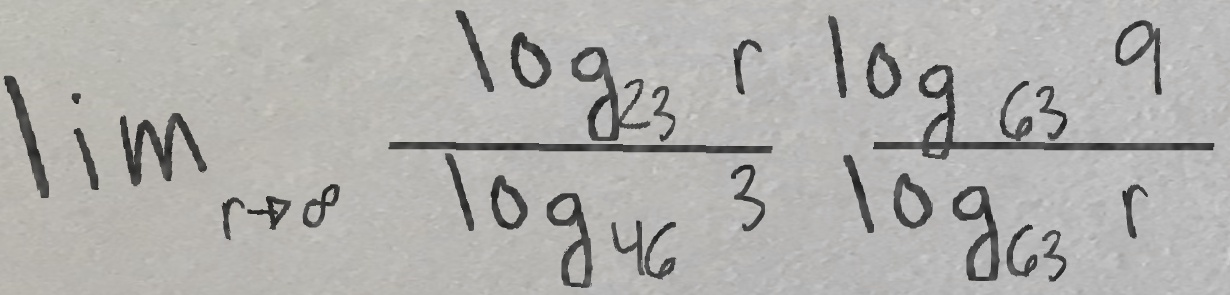 \lim_{r \to \infty} \frac{\log_{23} r}{\log_{46} 3} \frac{\log_{63} 9}{\log_{63} r}